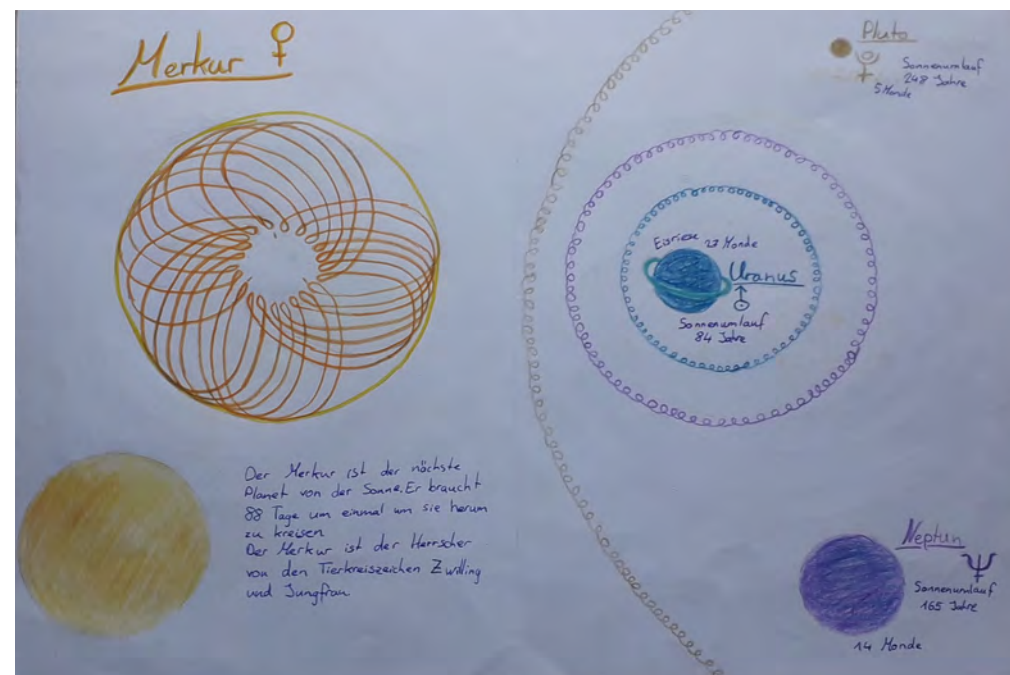 Merkur
Der Merkur ist der nächste
Planet von der Sonne. Er braucht
88 Tage um einmal um sie herum
zu kreisen
Der Merkur ist der Herrscher
von den Tierkreiszeichen Zwilling
und Jungfrau
Pluto
Sonnenumlauf
248 Jahre
5 Monde
27 Monde
Uranus
Sonnenumlauf
84 Jahre
Neptun
Sonnenumlauf
165 Jahre
14 Monde